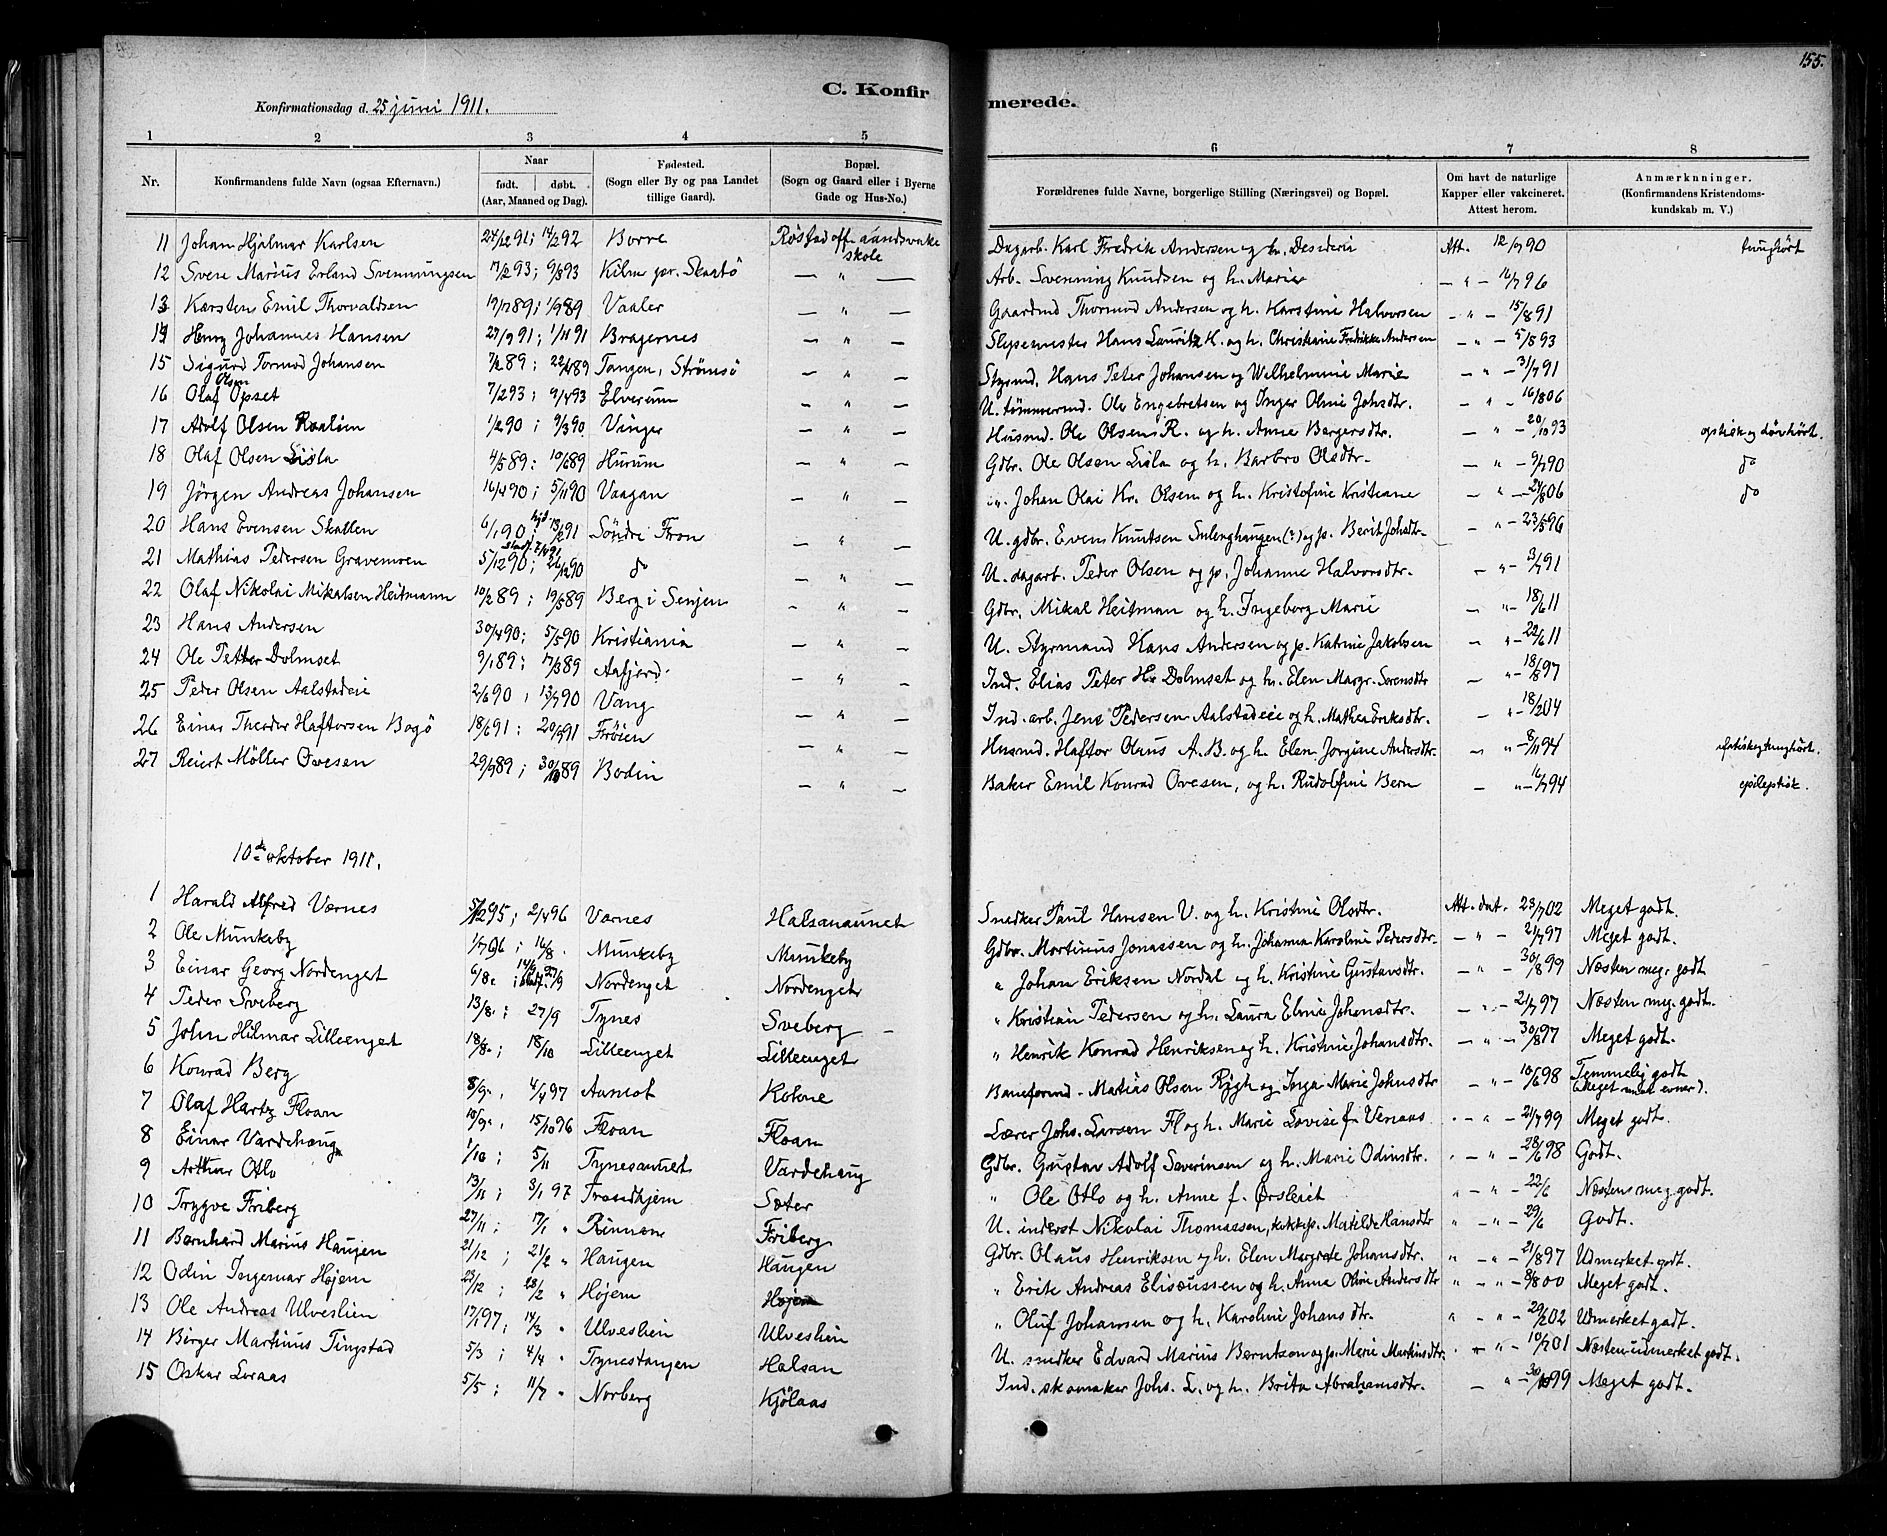 155.
C. Konfirmerede.
Konfirmationsdag d. 25 juni 1911.
1 2 3 4 5 6 7 8
Nr. Konfirmandens fulde Navn (ogsaa Efternavn). Naar født. døbt. (Aar, Maaned og Dag). Fødested. (Sogn eller By og paa Landet tillige Gaard). Bopæl. (Sogn og Gaard eller i Byerne Gade og Hus-No.) Forældrenes fulde Navne, borgerlige Stilling (Næringsvei) og Bopæl. Om havt de naturlige Kapper eller vakcineret. Attest herom. Anmærknninger. (Konfirmandens Kristendomskundskab m. V.)
11 Johan Hjalmar Karlsen 24/12 91; 14/2 92 Borre Røstad off. aandsvake skole Dagarb. Karl Fredrik Andersen og h. Desideria Att. 12/7 90 tunghørt
12 Sven Marius Erland Svenningsen 17/2 93; 9/8 93 Kilen pr. Skaatö — " — Arb. Svenning Knudsen og h. Marie — " — 16/7 96
13 Karsten Emil Thorvaldsen 19/7 89; 1/9 89 Vaaler — " — Gaardmd Thormod Andersen og h. Karstine Halvorsen — " — 15/8 91
14 Henry Johannes Hansen 27/9 91; 1/11 91 Bragernes — " — Slipemester Hans Lauritz H. og h. Christiane Fredrikke Andersen — " — 5/8 93
15 Sigurd Tormod Johansen 7/2 89; 22/4 89 Tangen, Strömsö — " — Styrmd. Hans Peter Johansen og Wilhelmine Marie — " — 31/7 91
16 Olaf Olsen Opset 7/2 93; 9/4 93 Elverum — " — U. tömmermd. Ole Engebretsen og Inger Oline Johsdtr. — " — 16/8 06
17 Adolf Olsen Raalien 1/2 90; 9/3 90 Vinger — " — Husmd. Ole Olsen R. og h. Anne Bergersdtr. — " — 20/10 93
18 Olaf Olsen Lisla 4/5 89; 10/6 89 Hurum — " — Gdbr. Ole Olsen Lisla og h. Barbro Olsdtr. — " — 9/7 90 do
19 Jörgen Andreas Johansen 16/4 90; 5/11 90 Vaagan — " — Johan Olai Kr. Olsen og h. Kristofine Kristiane — " — 24/8 06 do
20 Hans Evensen Skallen 6/1 90; hjd. 13/2 91 Söndre Fron — " — U. gdbr. Even Knutsen Sulenghaugen (?) og p. Berit Johsdtr. — " — 23/5 96
21 Mathias Pedersen Gravemoen 5/12 90; 26/12 90 do — " — U. dagarb. Peder Olsen og p. Johanne Halvorsdtr. — " — 3/7 91
22 Olaf Nikolai Mikalsen Heitmann 10/2 89; 19/5 89 Berg i Senjen — " — Gdbr. Mikal Heitman og h. Ingeborg Marie — " — 18/6 11
23 Hans Andersen 30/4 90; 5/5 90 Kristiania — " — U. Styrmand Hans Andersen og p. Katrine Jakobsen — " — 22/6 11
24 Ole Petter Dolmset 9/1 89; 17/3 89 Aafjord — " — Ind. Elias Peter H. Dolmset og h. Elen Margr. Sorensdtr — " — 18/8 97
25 Peder Olsen Aalstadeie 2/6 90; 13/7 90 Vang — " — Ind. arb. Jens Pedersen Aalstadeie og h. Mathea Eriksdtr. — " — 18/2 04
26 Einar Theodor Haftorsen Bogö 18/6 91; 20/9 91 Fröien — " — Husmd. Haftor Olaus A. B. og h. Elen Jorgine Andersdtr. — " — 8/11 94
27 Reiert Möller Ovesen 29/9 89; 30/10 89 Bodin — " — Baker Emil Konrad Ovesen, og h. Rudolfine Bern — " — 16/7 94 epileptisk.
10de oktober 1911.
1 Harald Alfred Værnes 5/12 95; 2/4 96 Værnes Halsanaunet Snedker Paul Hansen V. og h. Kristine Olsdtr. Att. dat. 23/7 02 Meget godt.
2 Ole Munkeby 1/7 96; 16/8. Munkeby Munkeby Gdbr. Martinus Jonassen og h. Johanna Karoline Pedersdtr. — " — 21/7 97 Meget godt.
3 Einar Georg Nordenget 6/8. 27/9 Nordenget Nordenget " Johan Eriksen Nordal og h. Kristine Gustavsdtr. — " — 30/8 99 Næsten meg. godt
4 Peder Sveberg 13/8.; 27/9 Tynes Sveberg " Kristian Pedersen og h. Laura Eline Johansdtr. — " — 21/7 97 Næsten meg. godt.
5 John Hilmar Lilleenget 18/8.; 18/10 Lilleenget Lilleenget " Henrik Konrad Henriksen og h. Kristine Johansdtr. — " — 30/8 97 Meget godt.
6 Konrad Berg 8/9., 4/4 97 Aamot Baneformd. Matias Olsen Righ og Inga Marie Johnsdtr — " — 10/6 98 Temmelig godt (Meget smaa evner).
7 Olaf Hartz Floan 10/9., 15/10 96 Floan Floan Lærer Johs. Larsen Fl og h. Marie Lovise f. Venaas — " — 21/7 99 Meget godt.
8 Einar Vardehaug 1/10; 5/11 Tynesaunet Vardehaug Gdbr. Gustav Adolf Severinsen og h. Marie Odinsdtr. — " — 28/6 98 Godt.
9 Arthur Otlo 13/11; 3/1 97 Trondhjem Sæter " Ole Otlo og h. Anne f. Ørsleiet — " — 22/6 Næsten meg. godt.
10 Trygve Friberg 27/11; 17/1 " Rinnan Friberg U. inderst Nikolai Thomassen, kokkep. Matilde Hansdtr — " — 29/6 Godt.
11 Bernhard Marius Haugen 21/12; 21/2 " Haugen Haugen Gdbr. Olaus Henriksen og h. Elen Margrete Johansdtr. " " — 21/8 97 Udmerket godt.
12 Odin Ingemar Højem 23/12; 28/2 " Højem Højem " Erik Andreas Eliseussen og h. Anna Oline Andersdtr " " — 8/8 00 Meget godt.
13 Ole Andreas Ulveslien 17/1 97; 14/3 " Ulveslien Ulveslien " Oluf Johansen og h. Karoline Johansdtr. " " — 29/2 02 Udmerket godt.
14 Birger Martinus Tingstad 5/3; 4/4 " Tynestangen Halsan U. snedker Edvard Marius Berntsen og p. Marie Martinsdtr. " — 10/7 01 Næsten udmerket godt.
15 Oskar Loraas 5/5; 11/7 " Norberg Kjölaas Ind. skomaker Johs. L. og h. Brita Abrahamsdtr. — " — 30/10 99 Meget godt.